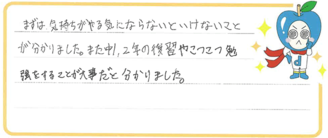 まずは気持ちがやる気にならないといけないこと
が分かりました。また中1,2年の復習やこつこつ勉
強をすることが大事だと分かりました。